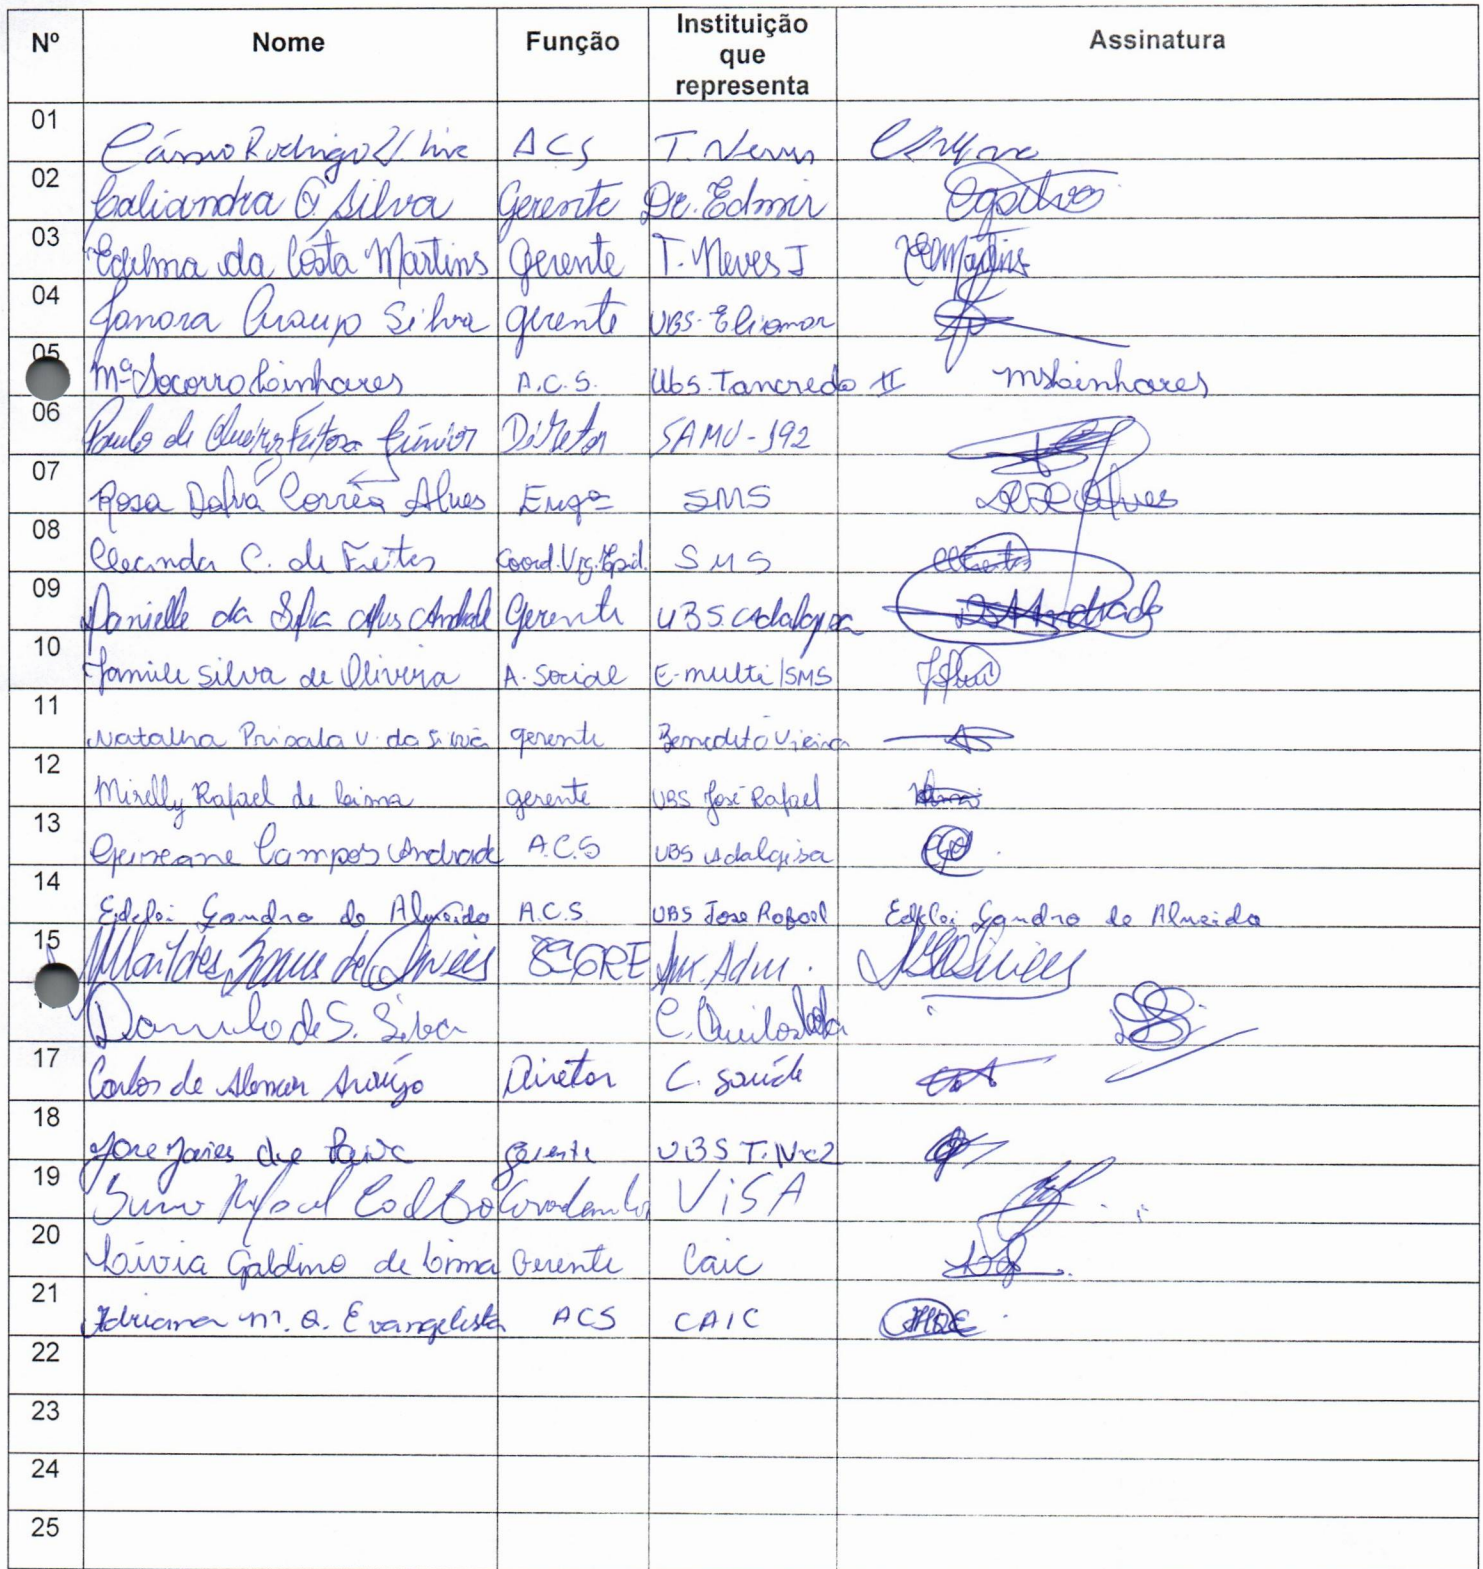 Nº Nome Função Instituição que representa Assinatura
01 Rodrigo ACS T. Neves
02 Caliandra Q Silva Gerente Dr. Edmir
03 Edelma da Costa Martins Gerente T. Neves I EMartins
04 Janora Araujo Silva gerente UBS. Eliomar
05 Mª Socorro Linhares A.C.S. Ubs. Tancredo II MsLinhares
06 Paulo de Queiroz Feitosa Júnior Diretor SAMU-192
07 Rosa Dalva Corrêa Alves Engª SMS Alves
08 C. de Freitas Coord. Vig. Epid. SMS
09 Danielle da Silva Alves Andrade Gerente UBS Adalgisa DSAAndrade
10 Jamile Silva de Oliveira A. Social E-multi/SMS
11 Natalha Priscila V. da Silva gerente Benedito Vieira
12 Mirelly Rafael de Lima gerente UBS José Rafael
13 Campos Andrade A.C.S UBS Adalgisa
14 Gandra de Almeida A.C.S UBS Jose Rafael Gandra de Almeida
15 8ª GRE Aux. Adm.
Danilo de S. Silva
17 Carlos de Alencar Araújo Diretor C. Saúde
18 Jose de Paiva gerente UBS T. N 2
19 Rafael Coelho VISA
20 Lívia Galdino de Lima Gerente Caic
21 Adriana Mª. Q. Evangelista ACS CAIC
22
23
24
25